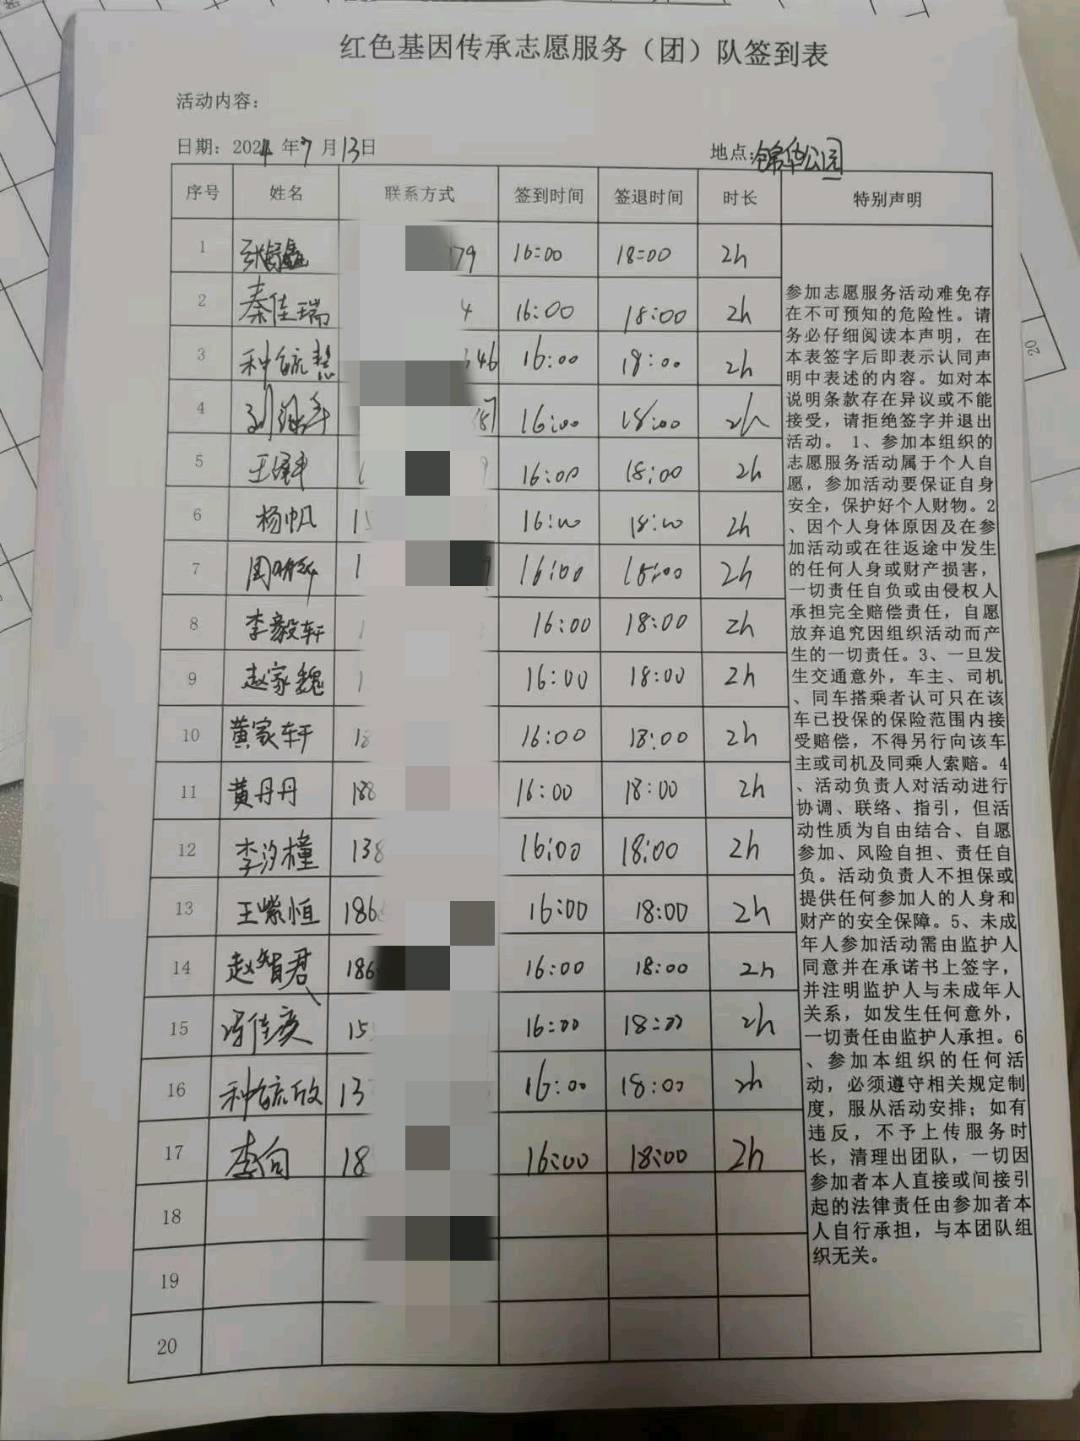 红色基因传承志愿服务（团）队签到表
活动内容：
日期：2024年7月13日
地点：锦华公园
序号 姓名 联系方式 签到时间 签退时间 时长 特别声明
1 79 16:00 18:00 2h
2 秦佳瑞 4 16:00 18:00 2h
3 种毓慧 46 16:00 18:00 2h
4 16:00 18:00 2h
5 16:00 18:00 2h
6 杨帆 15 16:00 18:00 2h
7 1 16:00 18:00 2h
8 李毅轩 16:00 18:00 2h
9 赵家魏 1 16:00 18:00 2h
10 黄家轩 18 16:00 18:00 2h
11 黄丹丹 188 16:00 18:00 2h
12 李汐橦 138 16:00 18:00 2h
13 王紫恒 186 16:00 18:00 2h
14 赵智君 186 16:00 18:00 2h
15 冯佳奕 15 16:00 18:00 2h
16 种毓欣 13 16:00 18:00 2h
17 李向 18 16:00 18:00 2h
18
19
20
参加志愿服务活动难免存
在不可预知的危险性。请
务必仔细阅读本声明，在
本表签字后即表示认同声
明中表述的内容。如对本
说明条款存在异议或不能
接受，请拒绝签字并退出
活动。1、参加本组织的
志愿服务活动属于个人自
愿，参加活动要保证自身
安全，保护好个人财物。2
、因个人身体原因及在参
加活动或在往返途中发生
的任何人身或财产损害，
一切责任自负或由侵权人
承担完全赔偿责任，自愿
放弃追究因组织活动而产
生的一切责任。3、一旦发
生交通意外，车主、司机
、同车搭乘者认可只在该
车已投保的保险范围内接
受赔偿，不得另行向该车
主或司机及同乘人索赔。4
、活动负责人对活动进行
协调、联络、指引，但活
动性质为自由结合、自愿
参加、风险自担、责任自
负。活动负责人不担保或
提供任何参加人的人身和
财产的安全保障。5、未成
年人参加活动需由监护人
同意并在承诺书上签字，
并注明监护人与未成年人
关系，如发生任何意外，
一切责任由监护人承担。6
、参加本组织的任何活
动，必须遵守相关规定制
度，服从活动安排；如有
违反，不予上传服务时
长，清理出团队，一切因
参加者本人直接或间接引
起的法律责任由参加者本
人自行承担，与本团队组
织无关。
20